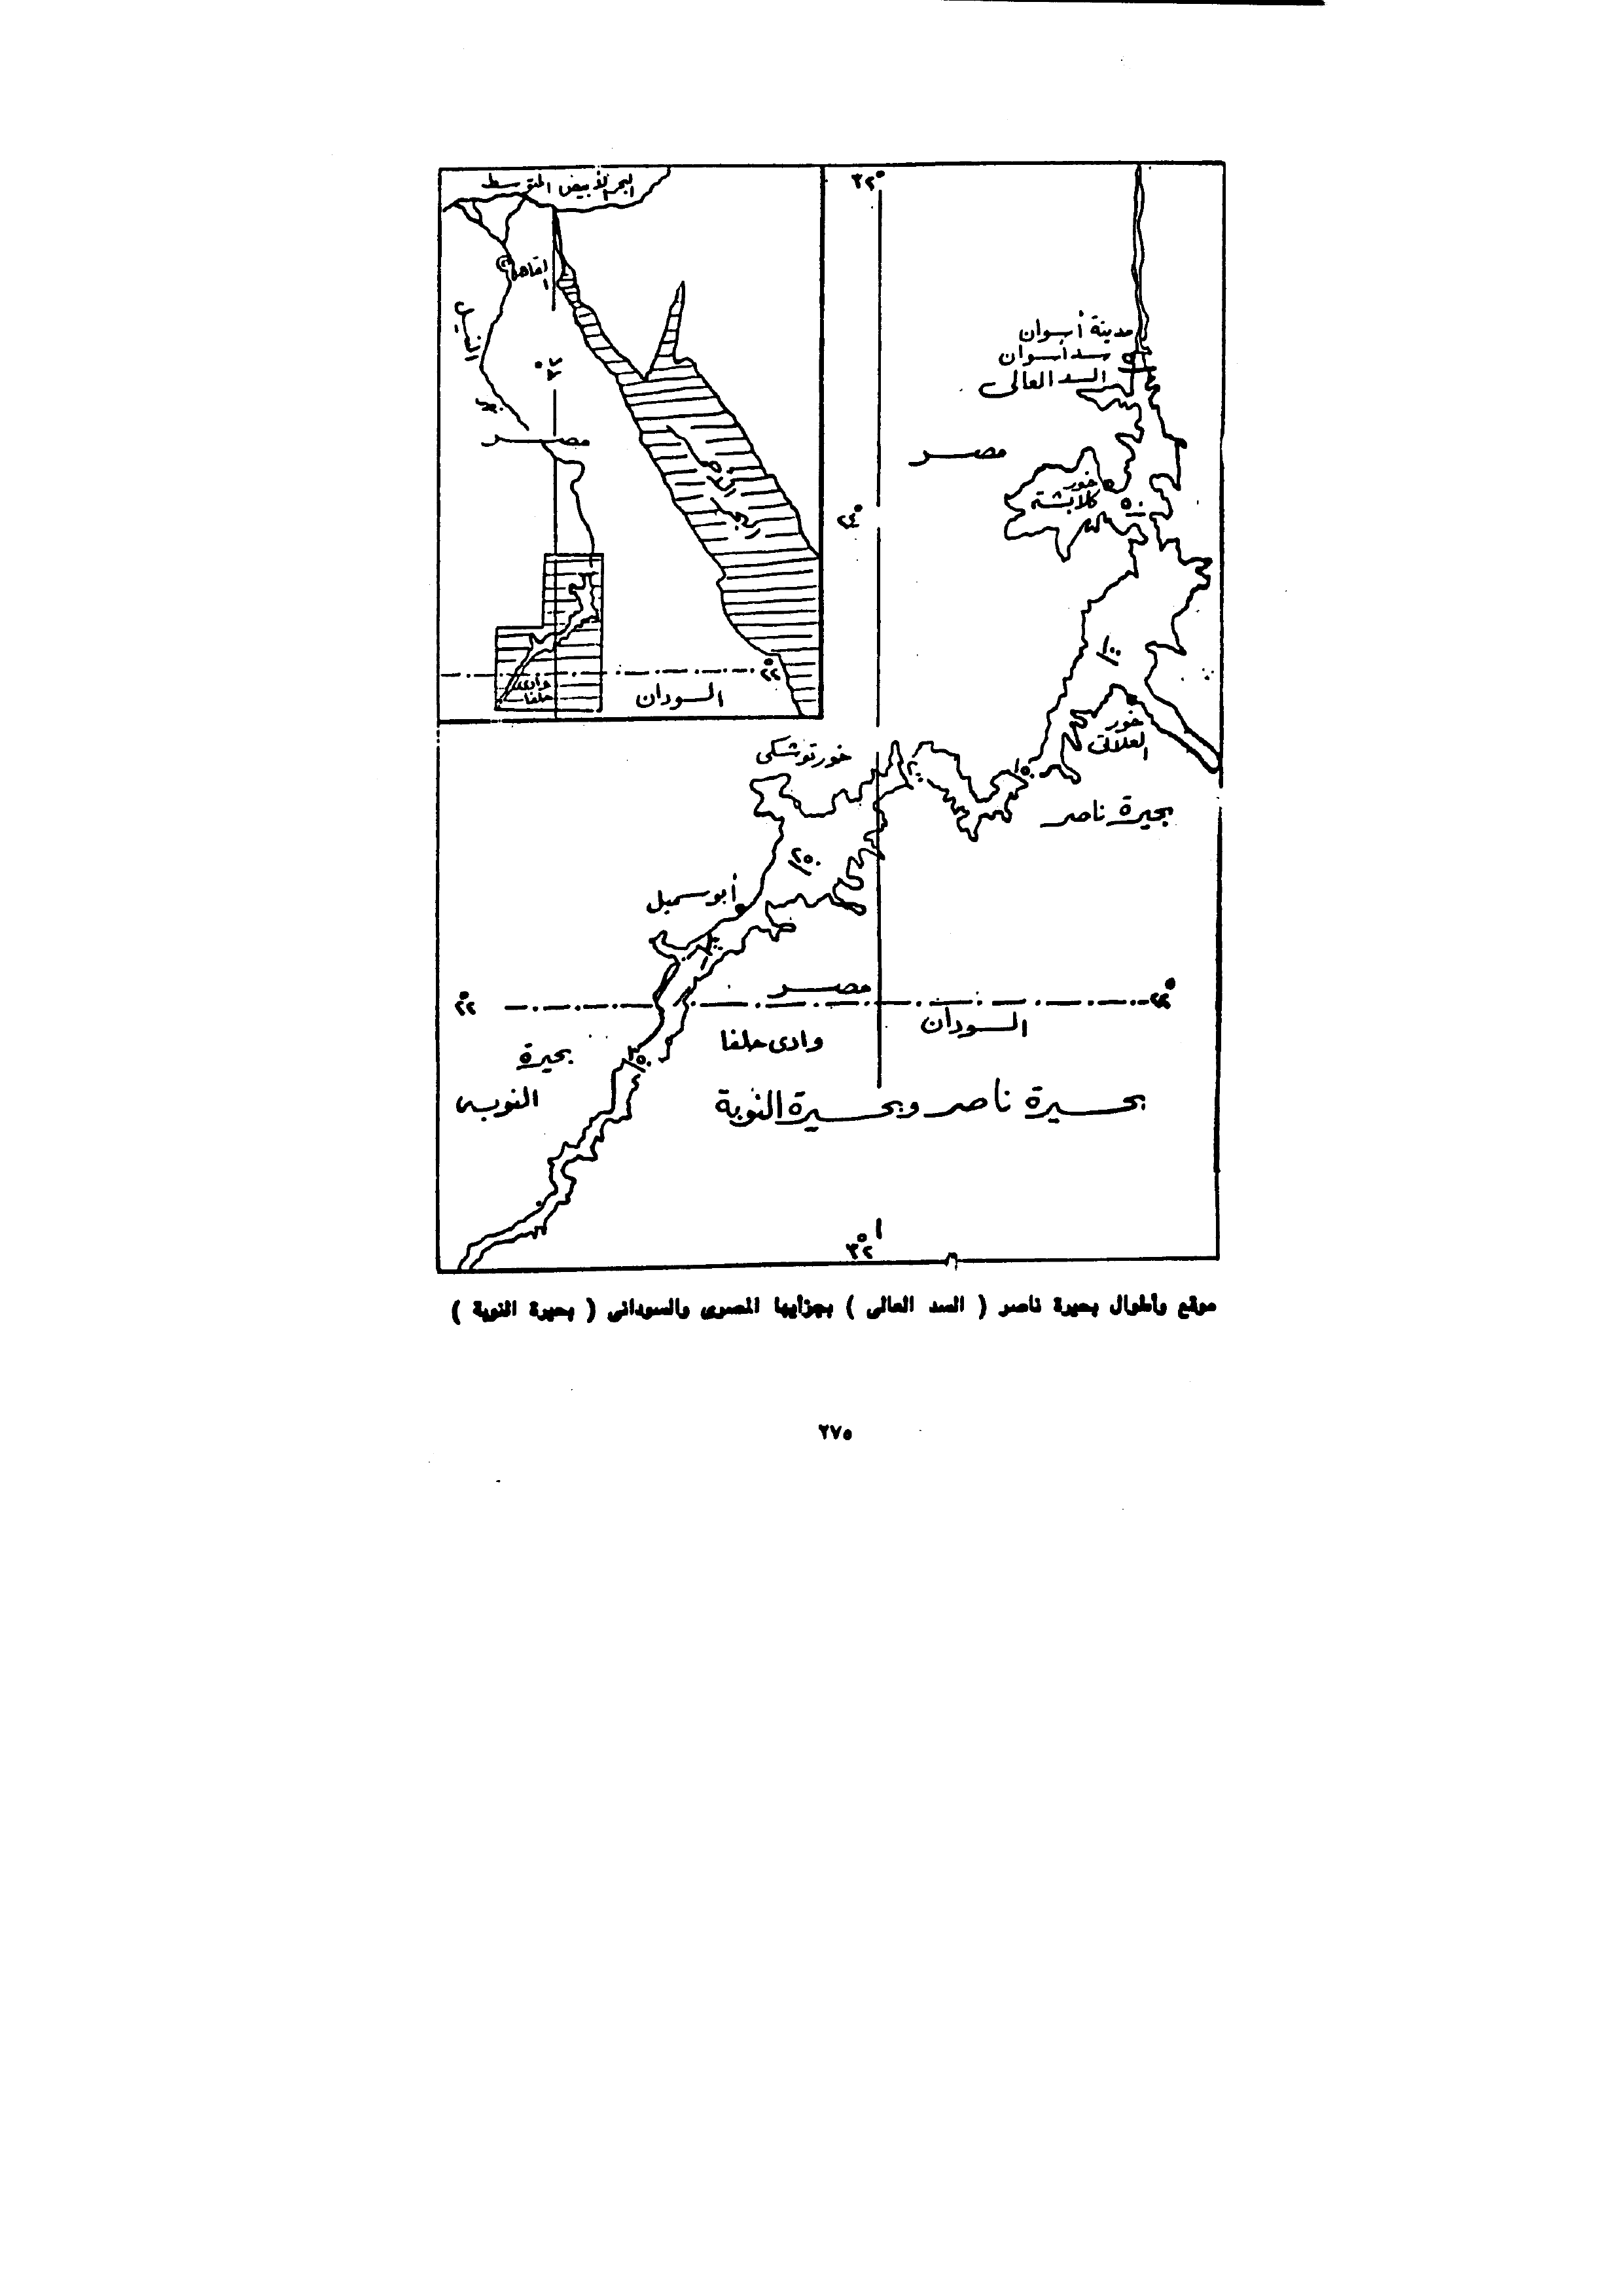 البحر الأبيض المتوسط
القاهرة
مصر
السودان
٢٢°
وادى
حلفا
٣٢°
مدينة أسوان
سد أسوان
السد العالى
مصر
خور
كلابشة
٥٠
٢٤°
١٠٠
خور
العلاقى
خور توشكى
١٥٠
بحيرة ناصر
٢٥٠
أبو سمبل
مصر
٢٢°
٢٢°
السودان
وادى حلفا
بحيرة
النوبه
٣٥٠
بحيرة ناصر وبحيرة النوبة
٣٢°
موقع وأطوال بحيرة ناصر ( السد العالى ) بجزأيها المصرى والسودانى ( بحيرة النوبة )
٢٧٥